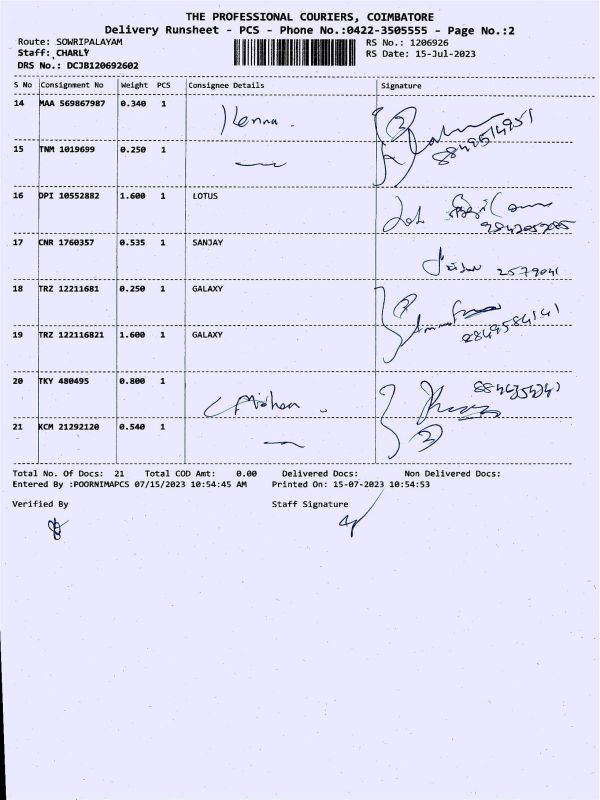 THE PROFESSIONAL COURIERS, COIMBATORE
Delivery Runsheet - PCS - Phone No.:0422-3505555 - Page No.:2
Route: SOWRIPALAYAM RS No.: 1206926
Staff: CHARLY RS Date: 15-Jul-2023
DRS No.: DCJB120692602
S No Consignment No Weight PCS Consignee Details Signature
14 MAA 569867987 0.340 1
15 TNM 1019699 0.250 1
16 DPI 10552882 1.600 1 LOTUS
17 CNR 1760357 0.535 1 SANJAY
2579041
18 TRZ 12211681 0.250 1 GALAXY
19 TRZ 122116821 1.600 1 GALAXY
20 TKY 480495 0.800 1
Mohan
21 KCM 21292120 0.540 1
Total No. Of Docs: 21 Total COD Amt: 0.00 Delivered Docs: Non Delivered Docs:
Entered By :POORNIMAPCS 07/15/2023 10:54:45 AM Printed On: 15-07-2023 10:54:53
Verified By Staff Signature